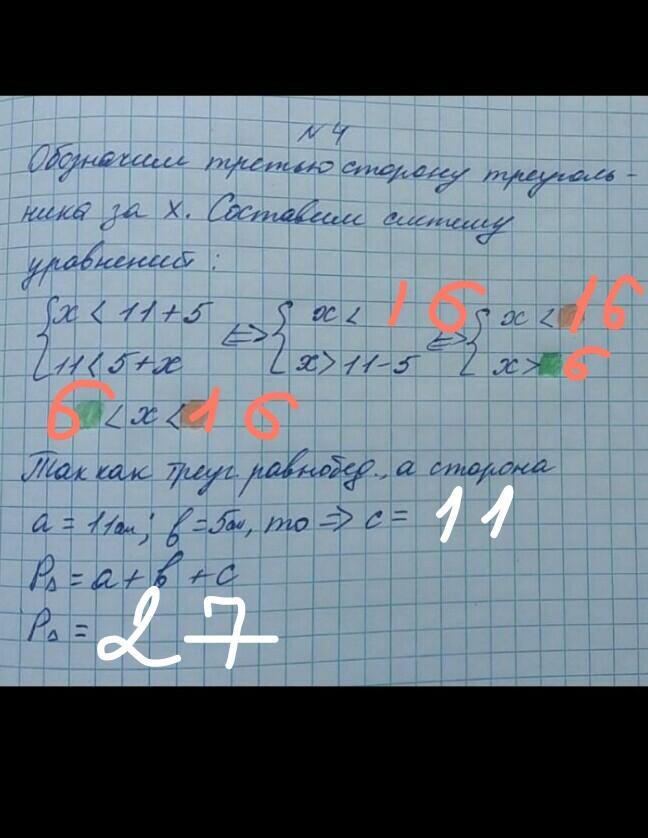 N 4
Обозначим третью сторону треуголь-
ника за x. Составим систему
уравнений:
{x < 11+5 <=> { x < 16 <=> { x < 16
{11 < 5+x { x > 11-5 { x > 6
6 < x < 16
Так как треуг. равнобед., а сторона
a = 11см; b = 5см, то => c = 11
P∆ = a + b + c
P∆ = 27